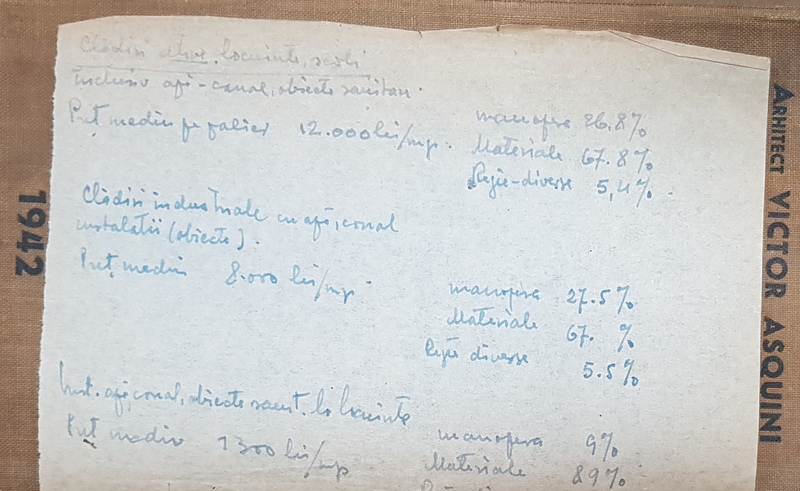 Clădiri
locuințe, școli
inclusiv apă-canal, obiecte sanitare.
Preț mediu pe palier 12.000 lei/mp.
manopera 26.8%
Materiale 67.8%
Regie-diverse 5,4%.
Clădiri industriale cu apă, canal
instalații (obiecte).
Preț mediu 8.000 lei/mp.
manopera 27.5%
Materiale 67. %
Regie diverse 5.5%
Inst. apă, canal, obiecte sanit. la locuințe
Preț mediu 1300 lei/mp
manopera 9%
Materiale 89%
1942
ARHITECT VICTOR ASQUINI